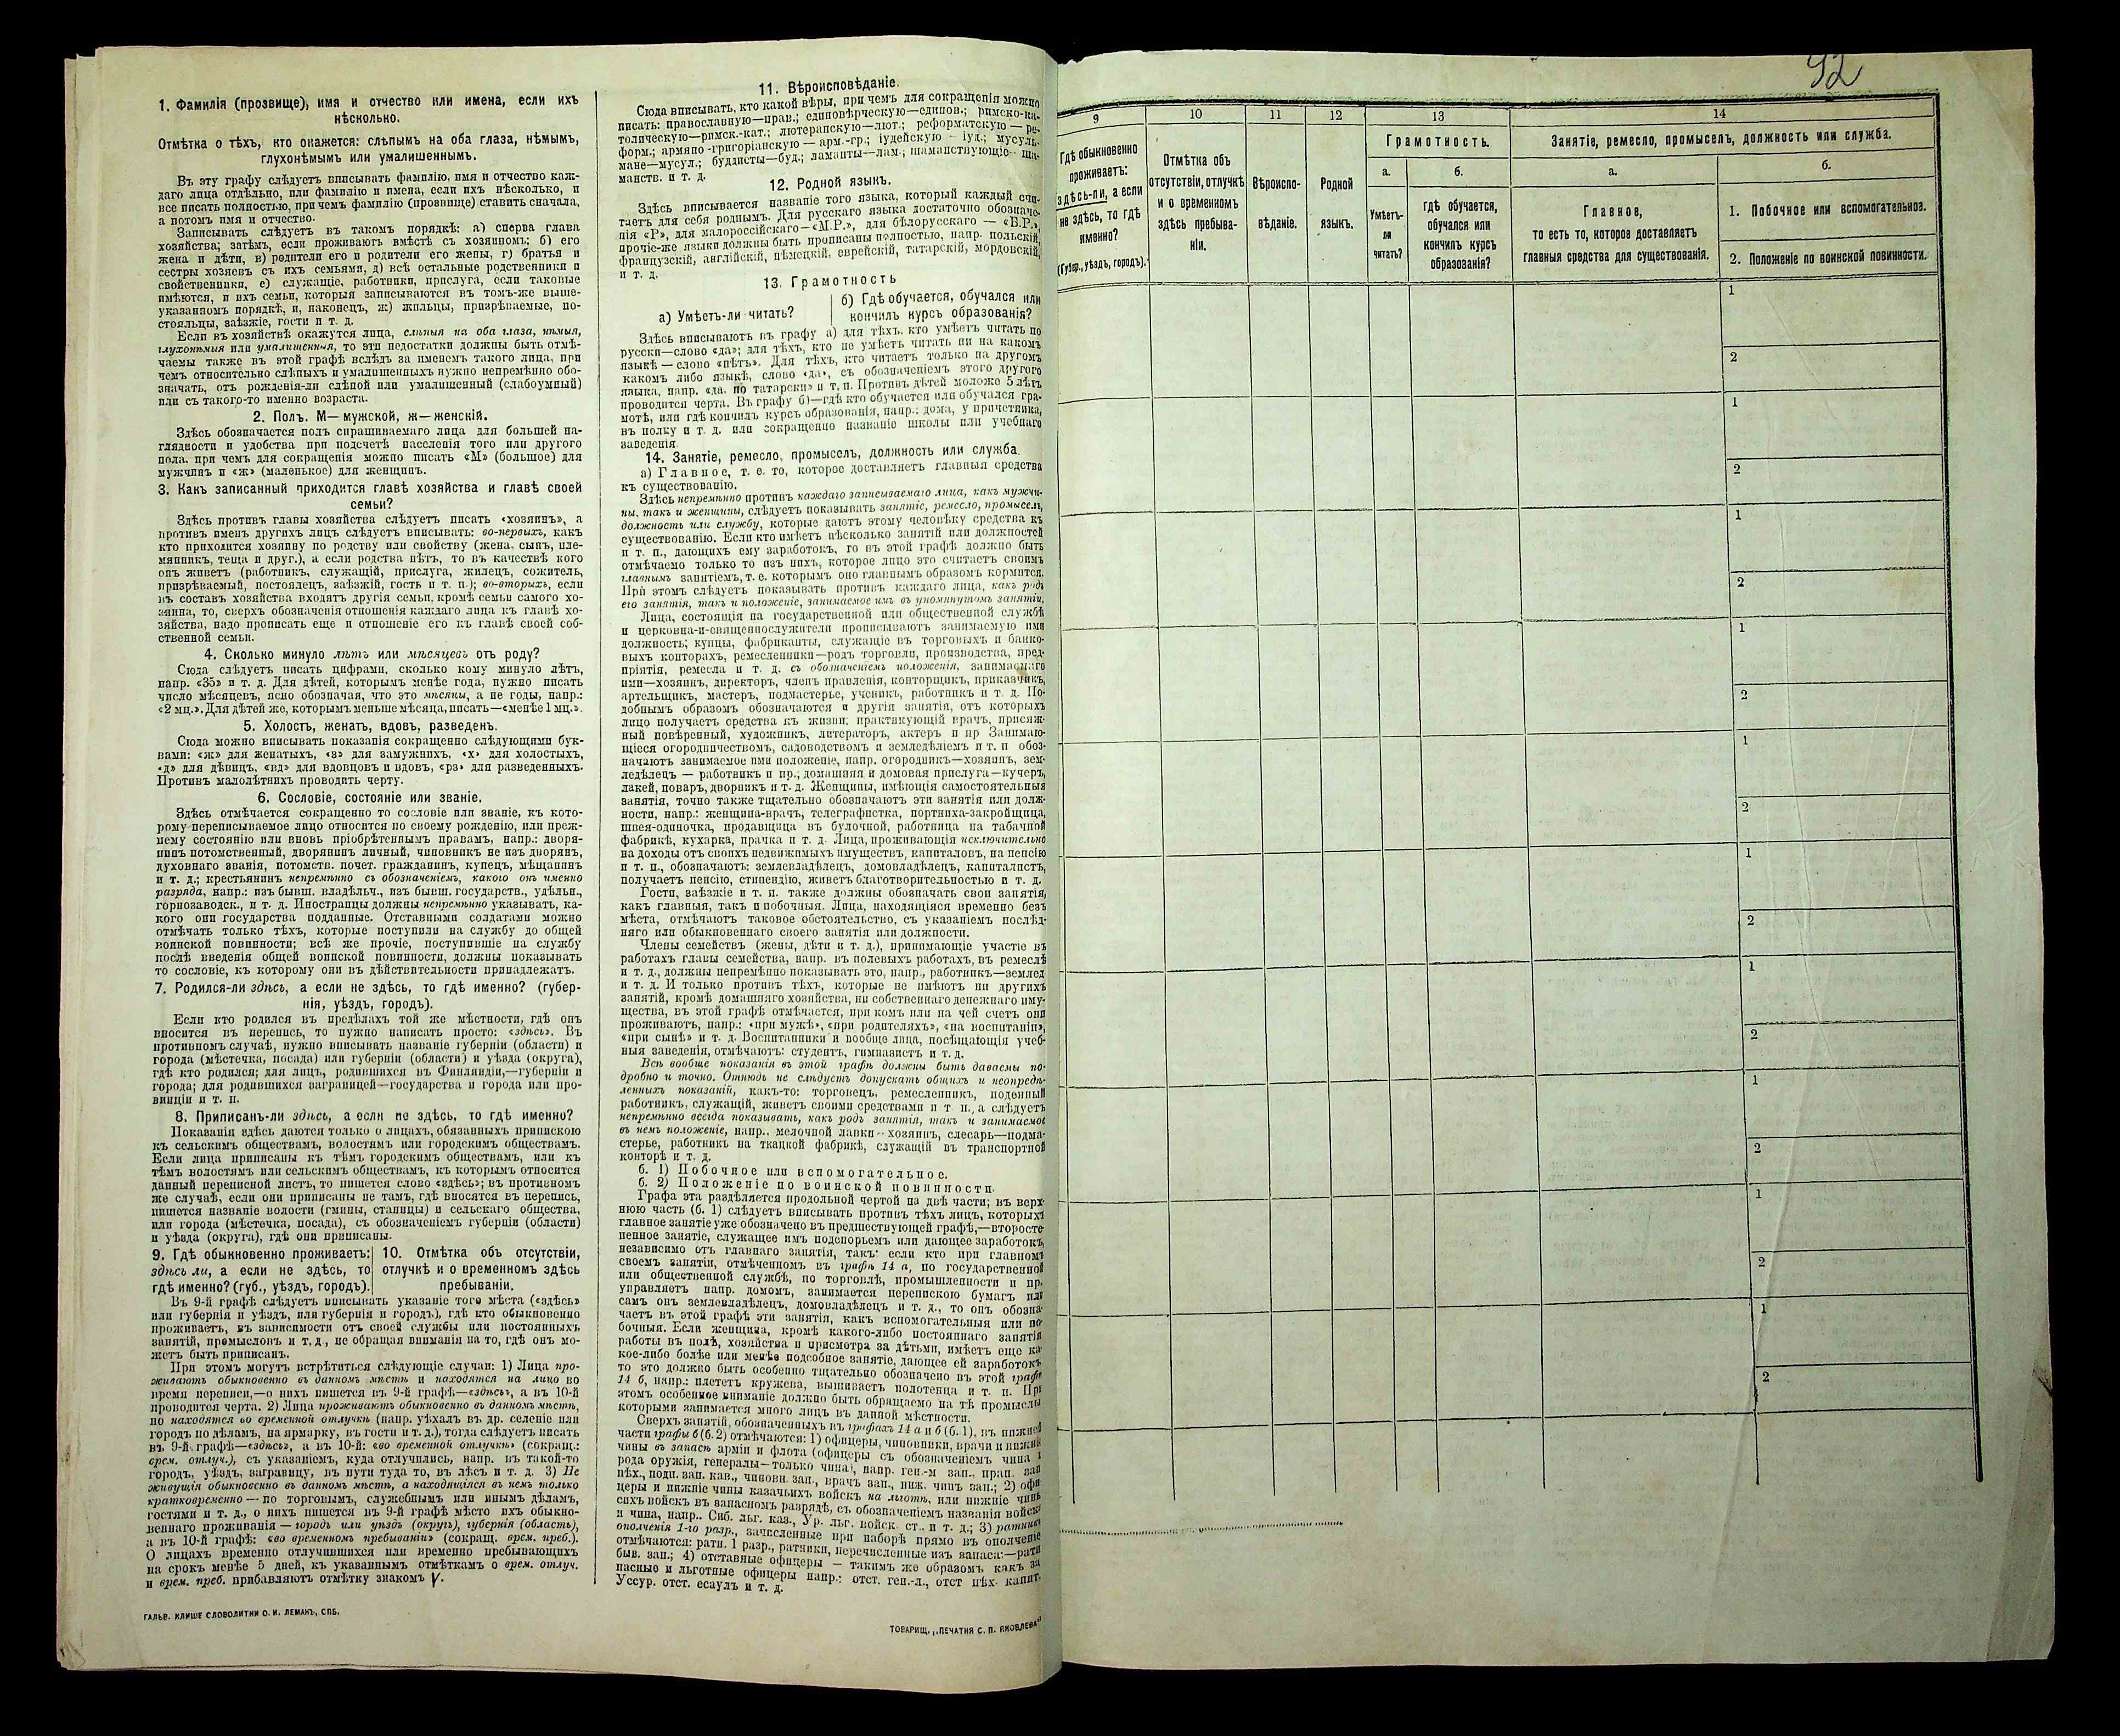 1. Фамилія (прозвище), имя и отчество или имена, если ихъ
нѣсколько.
Отмѣтка о тѣхъ, кто окажется: слѣпымъ на оба глаза, нѣмымъ,
глухонѣмымъ или умалишеннымъ.
Въ эту графу слѣдуетъ вписывать фамилію, имя и отчество каж-
даго лица отдѣльно, или фамилію и имена, если ихъ нѣсколько, и
все писать полностью, при чемъ фамилію (прозвище) ставить сначала,
а потомъ имя и отчество.
Записывать слѣдуетъ въ такомъ порядкѣ: а) сперва глава
хозяйства; затѣмъ, если проживаютъ вмѣстѣ съ хозяиномъ: б) его
жена и дѣти, в) родители его и родители его жены, г) братья и
сестры хозяевъ съ ихъ семьями, д) всѣ остальные родственники и
свойственники, е) служащіе, работники, прислуга, если таковые
имѣются, и ихъ семьи, которыя записываются въ томъ-же выше-
указанномъ порядкѣ, и, наконецъ, ж) жильцы, призрѣваемые, по-
стояльцы, заѣзжіе, гости и т. д.
Если въ хозяйствѣ окажутся лица, слѣпыя на оба глаза, нѣмыя,
глухонѣмыя или умалишенныя, то эти недостатки должны быть отмѣ-
чаемы также въ этой графѣ вслѣдъ за именемъ такого лица, при
чемъ относительно слѣпыхъ и умалишенныхъ нужно непремѣнно обо-
значать, отъ рожденія-ли слѣпой или умалишенный (слабоумный)
или съ такого-то именно возраста.
2. Полъ. М—мужской, ж—женскій.
Здѣсь обозначается полъ спрашиваемаго лица для большей на-
глядности и удобства при подсчетѣ населенія того или другого
пола, при чемъ для сокращенія можно писать «М» (большое) для
мужчинъ и «ж» (маленькое) для женщинъ.
3. Какъ записанный приходится главѣ хозяйства и главѣ своей
семьи?
Здѣсь противъ главы хозяйства слѣдуетъ писать «хозяинъ», а
противъ именъ другихъ лицъ слѣдуетъ вписывать: во-первыхъ, какъ
кто приходится хозяину по родству или свойству (жена, сынъ, пле-
мянникъ, теща и друг.), а если родства нѣтъ, то въ качествѣ кого
онъ живетъ (работникъ, служащій, прислуга, жилецъ, сожитель,
призрѣваемый, постоялецъ, заѣзжій, гость и т. п.); во-вторыхъ, если
въ составъ хозяйства входятъ другія семьи, кромѣ семьи самого хо-
зяина, то, сверхъ обозначенія отношенія каждаго лица къ главѣ хо-
зяйства, надо прописать еще и отношеніе его къ главѣ своей соб-
ственной семьи.
4. Сколько минуло лѣтъ или мѣсяцевъ отъ роду?
Сюда слѣдуетъ писать цифрами, сколько кому минуло лѣтъ,
напр. «35» и т. д. Для дѣтей, которымъ менѣе года, нужно писать
число мѣсяцевъ, ясно обозначая, что это мѣсяцы, а не годы, напр.:
«2 мц.». Для дѣтей же, которымъ меньше мѣсяца, писать—«менѣе 1 мц.».
5. Холостъ, женатъ, вдовъ, разведенъ.
Сюда можно вписывать показанія сокращенно слѣдующими бук-
вами: «ж» для женатыхъ, «з» для замужнихъ, «х» для холостыхъ,
«д» для дѣвицъ, «вд» для вдовцовъ и вдовъ, «рз» для разведенныхъ.
Противъ малолѣтнихъ проводить черту.
6. Сословіе, состояніе или званіе.
Здѣсь отмѣчается сокращенно то сословіе или званіе, къ кото-
рому переписываемое лицо относится по своему рожденію, или преж-
нему состоянію или вновь пріобрѣтеннымъ правамъ, напр.: дворя-
нинъ потомственный, дворянинъ личный, чиновникъ не изъ дворянъ,
духовнаго званія, потомств. почет. гражданинъ, купецъ, мѣщанинъ
и т. д.; крестьянинъ непремѣнно съ обозначеніемъ, какого онъ именно
разряда, напр.: изъ бывш. владѣльч., изъ бывш. государств., удѣльн.,
горнозаводск., и т. д. Иностранцы должны непремѣнно указывать, ка-
кого они государства подданные. Отставными солдатами можно
отмѣчать только тѣхъ, которые поступили на службу до общей
воинской повинности; всѣ же прочіе, поступившіе на службу
послѣ введенія общей воинской повинности, должны показывать
то сословіе, къ которому они въ дѣйствительности принадлежатъ.
7. Родился-ли здѣсь, а если не здѣсь, то гдѣ именно? (губер-
нія, уѣздъ, городъ).
Если кто родился въ предѣлахъ той же мѣстности, гдѣ онъ
вносится въ перепись, то нужно написать просто: «здѣсь». Въ
противномъ случаѣ, нужно вписывать названіе губерніи (области) и
города (мѣстечка, посада) или губерніи (области) и уѣзда (округа),
гдѣ кто родился; для лицъ, родившихся въ Финляндіи,—губерніи и
города; для родившихся заграницей—государства и города или про-
винціи и т. п.
8. Приписанъ-ли здѣсь, а если не здѣсь, то гдѣ именно?
Показанія здѣсь даются только о лицахъ, обязанныхъ припискою
къ сельскимъ обществамъ, волостямъ или городскимъ обществамъ.
Если лица приписаны къ тѣмъ городскимъ обществамъ, или къ
тѣмъ волостямъ или сельскимъ обществамъ, къ которымъ относится
данный переписной листъ, то пишется слово «здѣсь»; въ противномъ
же случаѣ, если они приписаны не тамъ, гдѣ вносятся въ перепись,
пишется названіе волости (гмины, станицы) и сельскаго общества,
или города (мѣстечка, посада), съ обозначеніемъ губерніи (области)
и уѣзда (округа), гдѣ они приписаны.
9. Гдѣ обыкновенно проживаетъ:
здѣсь ли, а если не здѣсь, то
гдѣ именно? (губ., уѣздъ, городъ).
10. Отмѣтка объ отсутствіи,
отлучкѣ и о временномъ здѣсь
пребываніи.
Въ 9-й графѣ слѣдуетъ вписывать указаніе того мѣста («здѣсь»
или губернія и уѣздъ, или губернія и городъ), гдѣ кто обыкновенно
проживаетъ, въ зависимости отъ своей службы или постоянныхъ
занятій, промысловъ и т. д., не обращая вниманія на то, гдѣ онъ мо-
жетъ быть приписанъ.
При этомъ могутъ встрѣтиться слѣдующіе случаи: 1) Лица про-
живаютъ обыкновенно въ данномъ мѣстѣ и находятся на лицо во
время переписи,—о нихъ пишется въ 9-й графѣ—«здѣсь», а въ 10-й
проводится черта. 2) Лица проживаютъ обыкновенно въ данномъ мѣстѣ,
но находятся во временной отлучкѣ (напр. уѣхалъ въ др. селеніе или
городъ по дѣламъ, на ярмарку, въ гости и т. д.), тогда слѣдуетъ писать
въ 9-й графѣ—«здѣсь», а въ 10-й: «во временной отлучкѣ» (сокращ.:
врем. отлуч.), съ указаніемъ, куда отлучились, напр. въ такой-то
городъ, уѣздъ, заграницу, въ пути туда то, въ лѣсъ и т. д. 3) Не
живущія обыкновенно въ данномъ мѣстѣ, а находящіяся въ немъ только
кратковременно — по торговымъ, служебнымъ или инымъ дѣламъ,
гостями и т. д., о нихъ пишется въ 9-й графѣ мѣсто ихъ обыкно-
веннаго проживанія — городъ или уѣздъ (округъ), губернія (область),
а въ 10-й графѣ: «во временномъ пребываніи» (сокращ. врем. преб.).
О лицахъ временно отлучившихся или временно пребывающихъ
на срокъ менѣе 5 дней, къ указаннымъ отмѣткамъ о врем. отлуч.
и врем. преб. прибавляютъ отмѣтку знакомъ V.
ГАЛЬВ. КЛИШЕ СЛОВОЛИТНИ О. И. ЛЕМАНЪ, СПБ.
11. Вѣроисповѣданіе.
Сюда вписывать, кто какой вѣры, при чемъ для сокращенія можно
писать: православную—прав.; единовѣрческую—единов.; римско-ка-
толическую—римск.-кат.; лютеранскую—лют.; реформатскую — ре-
форм.; армяно-григоріанскую — арм.-гр.; іудейскую — іуд.; мусуль-
мане—мусул.; буддисты—буд.; ламаиты—лам.; шаманствующіе—ша-
манств. и т. д.
12. Родной языкъ.
Здѣсь вписывается названіе того языка, который каждый счи-
таетъ для себя роднымъ. Для русскаго языка достаточно обозначе-
нія «Р», для малороссійскаго—«М.Р.», для бѣлорусскаго — «Б.Р.»,
прочіе-же языки должны быть прописаны полностью, напр. польскій,
французскій, англійскій, нѣмецкій, еврейскій, татарскій, мордовскій,
и т. д.
13. Грамотность
а) Умѣетъ-ли читать?
б) Гдѣ обучается, обучался или
кончилъ курсъ образованія?
Здѣсь вписываютъ въ графу а) для тѣхъ, кто умѣетъ читать по
русски—слово «да»; для тѣхъ, кто не умѣетъ читать ни на какомъ
языкѣ — слово «нѣтъ». Для тѣхъ, кто читаетъ только на другомъ
какомъ либо языкѣ, слово «да», съ обозначеніемъ этого другого
языка, напр. «да, по татарски» и т. п. Противъ дѣтей моложе 5 лѣтъ
проводится черта. Въ графу б)—гдѣ кто обучается или обучался гра-
мотѣ, или гдѣ кончилъ курсъ образованія, напр.: дома, у причетника,
въ полку и т. д. или сокращенно названіе школы или учебнаго
заведенія.
14. Занятіе, ремесло, промыселъ, должность или служба.
а) Главное, т. е. то, которое доставляетъ главныя средства
къ существованію.
Здѣсь непремѣнно противъ каждаго записываемаго лица, какъ мужчи-
ны, такъ и женщины, слѣдуетъ показывать занятіе, ремесло, промыселъ,
должность или службу, которые даютъ этому человѣку средства къ
существованію. Если кто имѣетъ нѣсколько занятій или должностей
и т. п., дающихъ ему заработокъ, то въ этой графѣ должно быть
отмѣчаемо только то изъ нихъ, которое лицо это считаетъ своимъ
главнымъ занятіемъ, т. е. которымъ оно главнымъ образомъ кормится.
При этомъ слѣдуетъ показывать противъ каждаго лица, какъ родъ
его занятія, такъ и положеніе, занимаемое имъ въ упомянутомъ занятіи.
Лица, состоящія на государственной или общественной службѣ
и церковно-и-священнослужители прописываютъ занимаемую ими
должность; купцы, фабриканты, служащіе въ торговыхъ и банко-
выхъ конторахъ, ремесленники—родъ торговли, производства, пред-
пріятія, ремесла и т. д. съ обозначеніемъ положенія, занимаемаго
ими—хозяинъ, директоръ, членъ правленія, конторщикъ, приказчикъ,
артельщикъ, мастеръ, подмастерье, ученикъ, работникъ и т. д. По-
добнымъ образомъ обозначаются и другія занятія, отъ которыхъ
лицо получаетъ средства къ жизни: практикующій врачъ, присяж-
ный повѣренный, художникъ, литераторъ, актеръ и пр. Занимаю-
щіеся огородничествомъ, садоводствомъ и земледѣліемъ и т. п. обоз-
начаютъ занимаемое ими положеніе, напр. огородникъ—хозяинъ, зем-
ледѣлецъ — работникъ и пр.; домашняя и домовая прислуга—кучеръ,
лакей, поваръ, дворникъ и т. д. Женщины, имѣющія самостоятельныя
занятія, точно также тщательно обозначаютъ эти занятія или долж-
ности, напр.: женщина-врачъ, телеграфистка, портниха-закройщица,
швея-одиночка, продавщица въ булочной, работница на табачной
фабрикѣ, кухарка, прачка и т. д. Лица, проживающія исключительно
на доходы отъ своихъ недвижимыхъ имуществъ, капиталовъ, на пенсію
и т. п., обозначаютъ: землевладѣлецъ, домовладѣлецъ, капиталистъ,
получаетъ пенсію, стипендію, живетъ благотворительностью и т. д.
Гости, заѣзжіе и т. п. также должны обозначать свои занятія,
какъ главныя, такъ и побочныя. Лица, находящіяся временно безъ
мѣста, отмѣчаютъ таковое обстоятельство, съ указаніемъ послѣд-
няго или обыкновеннаго своего занятія или должности.
Члены семействъ (жены, дѣти и т. д.), принимающіе участіе въ
работахъ главы семейства, напр. въ полевыхъ работахъ, въ ремеслѣ
и т. д., должны непремѣнно показывать это, напр., работникъ—землед.
и т. д. И только противъ тѣхъ, которые не имѣютъ ни другихъ
занятій, кромѣ домашняго хозяйства, ни собственнаго денежнаго иму-
щества, въ этой графѣ отмѣчается, при комъ или на чей счетъ они
проживаютъ, напр.: «при мужѣ», «при родителяхъ», «на воспитаніи»,
«при сынѣ» и т. д. Воспитанники и вообще лица, посѣщающія учеб-
ныя заведенія, отмѣчаютъ: студентъ, гимназистъ и т. д.
Всѣ вообще показанія въ этой графѣ должны быть даваемы по-
дробно и точно. Отнюдь не слѣдуетъ допускать общихъ и неопредѣ-
ленныхъ показаній, какъ-то: торговецъ, ремесленникъ, поденный
работникъ, служащій, живетъ своими средствами и т. п., а слѣдуетъ
непремѣнно всегда показывать, какъ родъ занятія, такъ и занимаемое
въ немъ положеніе, напр.. мелочной лавки—хозяинъ, слесарь—подма-
стерье, работникъ на ткацкой фабрикѣ, служащій въ транспортной
конторѣ и т. д.
б. 1) Побочное или вспомогательное.
б. 2) Положеніе по воинской повинности.
Графа эта раздѣляется продольной чертой на двѣ части; въ верх-
нюю часть (б. 1) слѣдуетъ вписывать противъ тѣхъ лицъ, которыхъ
главное занятіе уже обозначено въ предшествующей графѣ,—второсте-
пенное занятіе, служащее имъ подспорьемъ или дающее заработокъ,
независимо отъ главнаго занятія, такъ: если кто при главномъ
своемъ занятіи, отмѣченномъ въ графѣ 14 а, по государственной
или общественной службѣ, по торговлѣ, промышленности и пр.
управляетъ напр. домомъ, занимается перепискою бумагъ или
самъ онъ землевладѣлецъ, домовладѣлецъ и т. д., то онъ обозна-
чаетъ въ этой графѣ эти занятія, какъ вспомогательныя или по-
бочныя. Если женщина, кромѣ какого-либо постояннаго занятія
работы въ полѣ, хозяйства и присмотра за дѣтьми, имѣетъ еще ка-
кое-либо болѣе или менѣе подсобное занятіе, дающее ей заработокъ
то это должно быть особенно тщательно обозначено въ этой графѣ
14 б, напр.: плететъ кружева, вышиваетъ полотенца и т. п. При
этомъ особенное вниманіе должно быть обращаемо на тѣ промыслы
которыми занимается много лицъ въ данной мѣстности.
Сверхъ занятій, обозначенныхъ въ графахъ 14 а и б (б. 1), въ нижней
части графы б (б. 2) отмѣчаются: 1) офицеры, чиновники, врачи и нижніе
чины въ запасѣ арміи и флота (офицеры съ обозначеніемъ чина и
рода оружія, генералы—только чина), напр. ген.-м зап., прап. зап
пѣх., подп. зап. кав., чиновн. зап., врачъ зап., ниж. чинъ зап.; 2) офи
церы и нижніе чины казачьихъ войскъ на льготѣ, или нижніе чины
сихъ войскъ въ запасномъ разрядѣ, съ обозначеніемъ названія войска
и чина, напр.. Сиб. льг. каз., Ур. льг. войск. ст., и т. д.; 3) ратники
ополченія 1-го разр., зачисленные при наборѣ прямо въ ополченіе
отмѣчаются: ратн. 1 разр., ратники, перечисленные изъ запаса:—ратн
быв. зап.; 4) отставные офицеры — такимъ же образомъ какъ за
пасные и льготные офицеры напр.: отст. ген.-л., отст пѣх. капит.
Уссур. отст. есаулъ и т. д.
ТОВАРИЩ. „ПЕЧАТНЯ С. П. ЯКОВЛЕВА“
92
9
10
11
12
13
14
Гдѣ обыкновенно
проживаетъ:
здѣсь-ли, а если
не здѣсь, то гдѣ
именно?
(Губер., уѣздъ, городъ).
Отмѣтка объ
отсутствіи, отлучкѣ
и о временномъ
здѣсь пребыва-
ніи.
Вѣроиспо-
вѣданіе.
Родной
языкъ.
Грамотность.
а.
Умѣетъ-
ли
читать?
б.
гдѣ обучается,
обучался или
кончилъ курсъ
образованія?
Занятіе, ремесло, промыселъ, должность или служба.
а.
Главное,
то есть то, которое доставляетъ
главныя средства для существованія.
б.
1. Побочное или вспомогательное.
2. Положеніе по воинской повинности.
1
2
1
2
1
2
1
2
1
2
1
2
1
2
1
2
1
2
1
2